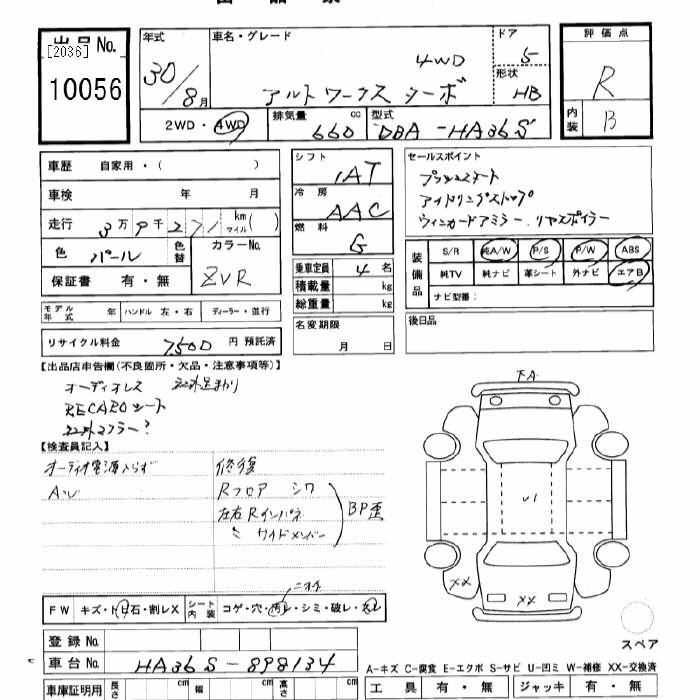 出品No. [2036]
10056
年式 車名・グレード ドア
30/8月 4WD 5
アルトワークス ターボ 形状 HB
2WD・4WD 排気量 660 cc 型式 DBA-HA36S
評価点 R
内装 B
車歴 自家用・( )
車検 年 月
走行 3万9千271 km マイル( )
色 パール 色替 カラーNo. ZVR
保証書 有・無
モデル年式 年 ハンドル 左・右 ディーラー・並行
リサイクル料金 7500 円 預託済
シフト IAT
冷房 AAC
燃料 G
乗車定員 4名
積載量 kg
総重量 kg
名変期限
月 日
セールスポイント
プッシュスタート
アイドリングストップ
ウィンカードアミラー、リヤスポイラー
装備品 S/R 純A/W P/S P/W ABS
純TV 純ナビ 革シート 外ナビ エアB
ナビ型番:
後日品
【出品店申告欄(不良箇所・欠品・注意事項等)】
オーディオレス 社外足まわり
RECAROシート
社外マフラー?
【検査員記入】
オーディオ電源入らず 修復
Rフロア シワ
左右Rインパネ BP歪
ミ サイドメンバー
FA
U1
XX
XX XX
ニオイ
FW キズ・トビ石・割レX シート内装 コゲ・穴・汚レ・シミ・破レ・スレ
スペア
登録No.
車台No. HA36S-898134
A-キズ C-腐食 E-エクボ S-サビ U-凹ミ W-補修 XX-交換済
車庫証明用 長さ cm 幅 cm 高さ cm
工具 有・無 ジャッキ 有・無